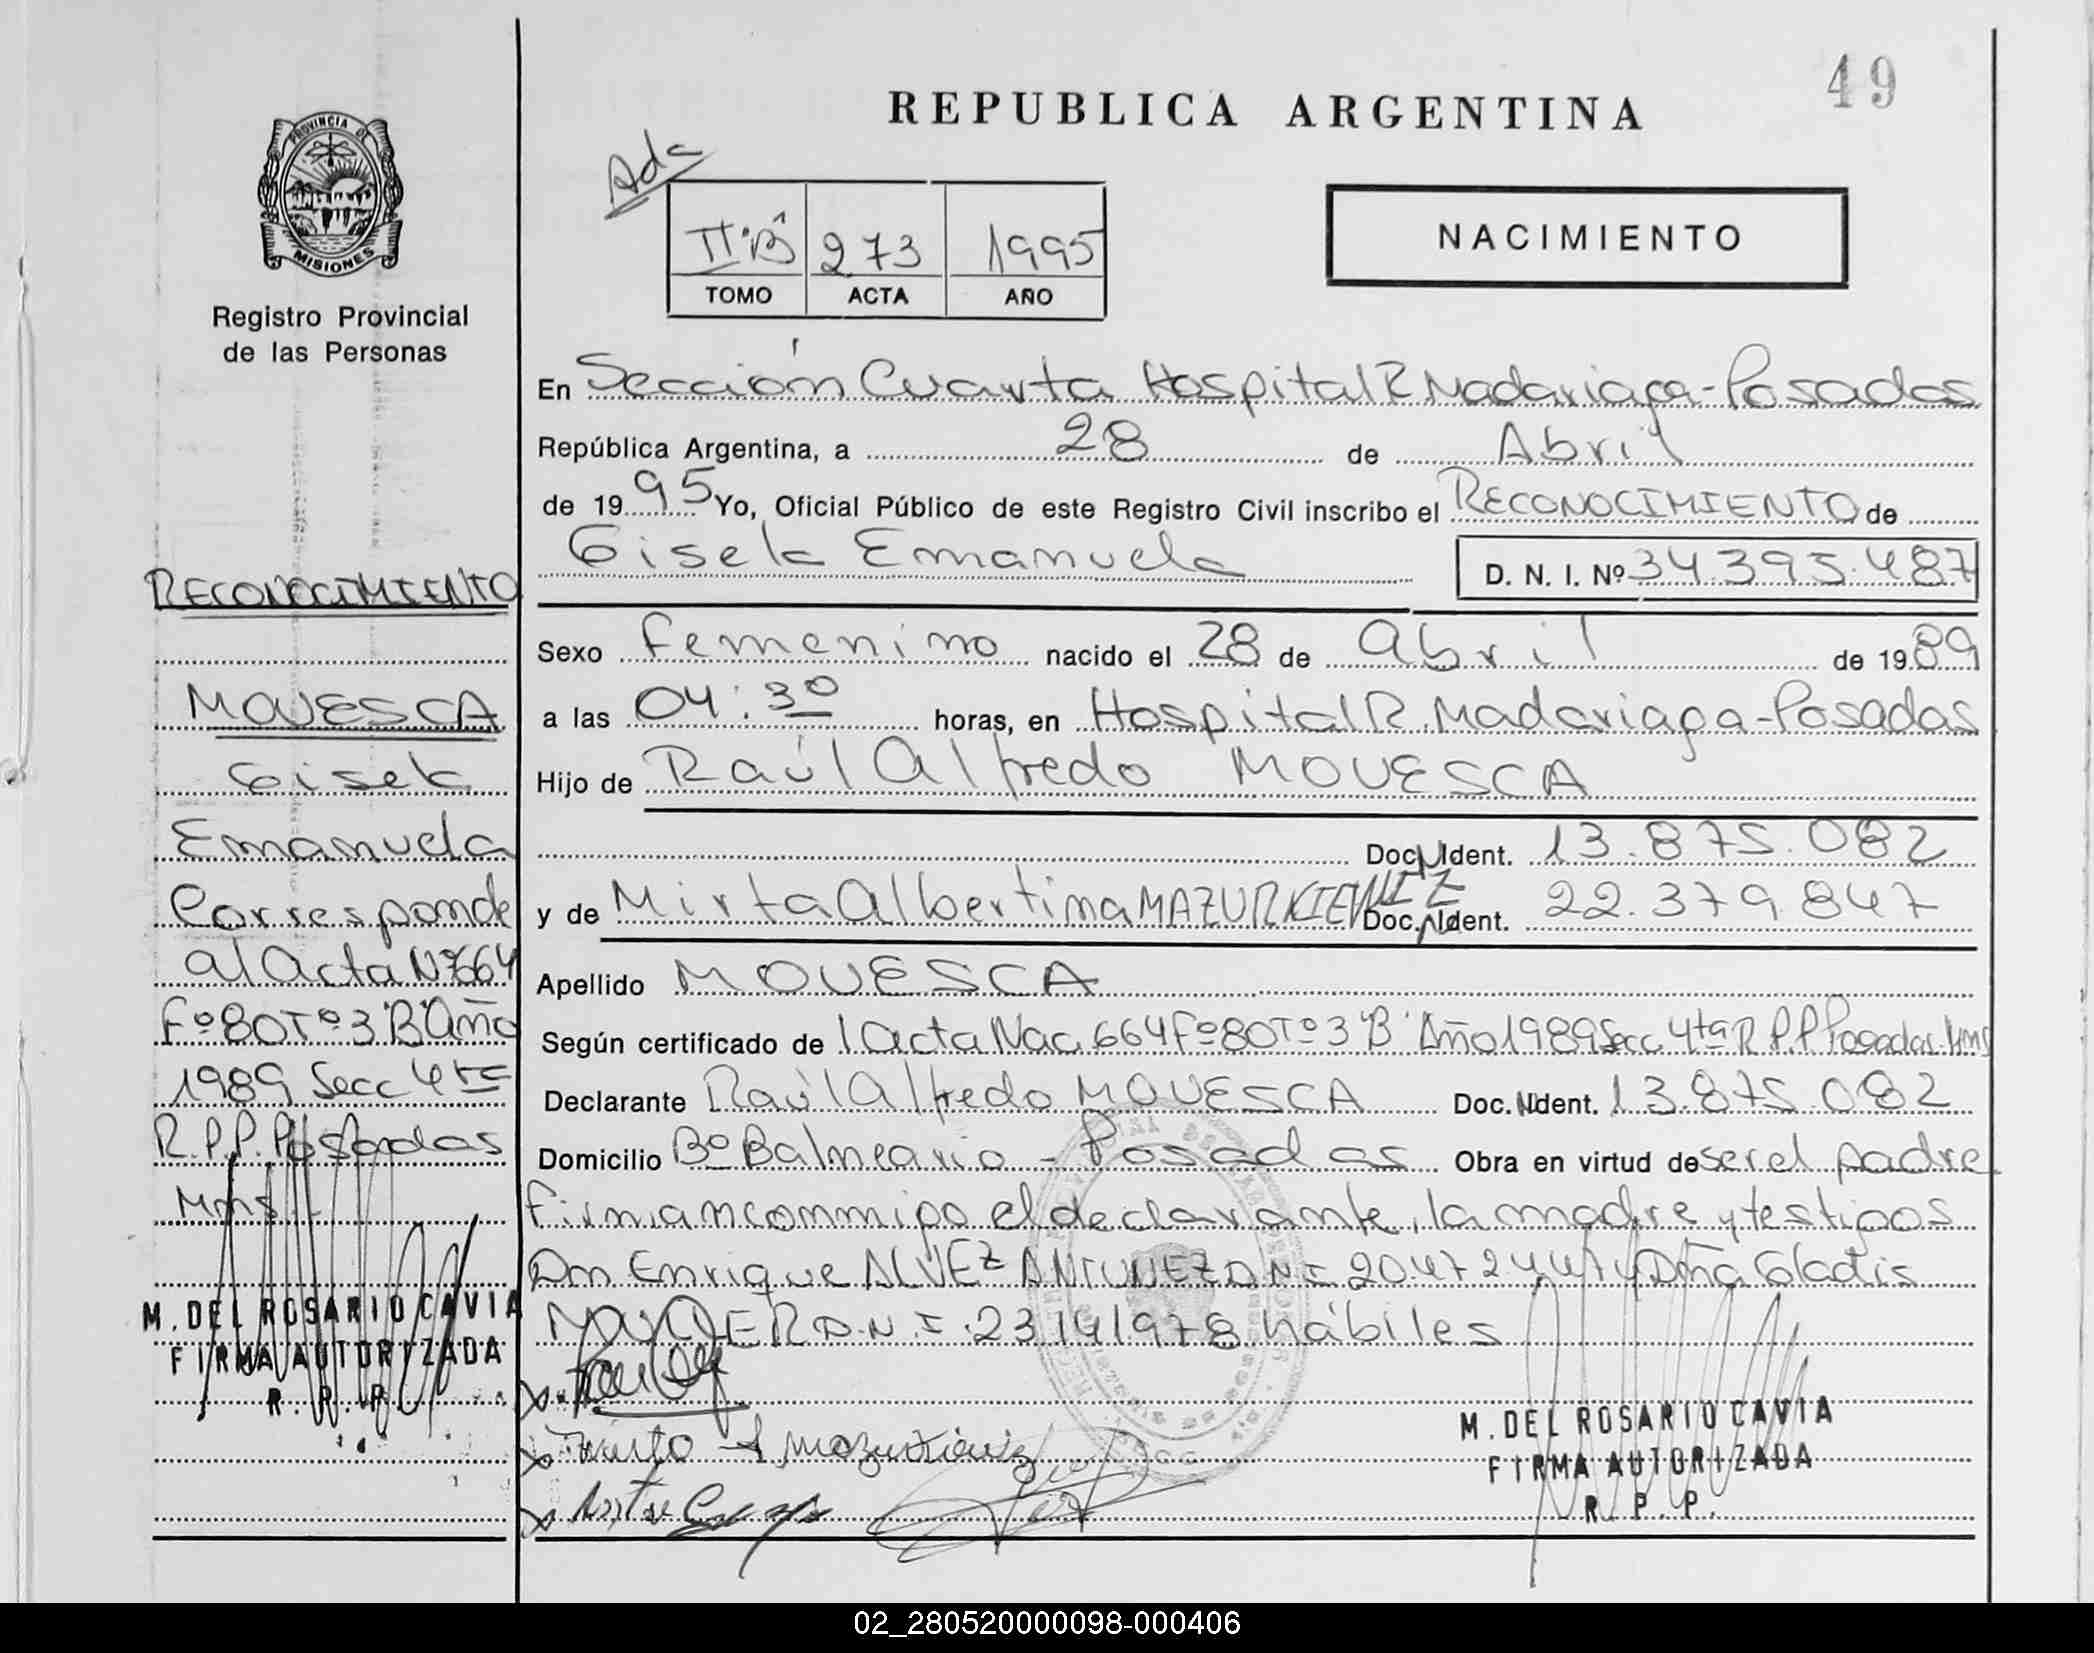 49
REPUBLICA ARGENTINA
PROVINCIA DE
MISIONES
Registro Provincial
de las Personas
Ada
II "B" 273 1995
TOMO ACTA AÑO
NACIMIENTO
En Sección Cuarta Hospital R Madariaga - Posadas
República Argentina, a 28 de Abril
de 1995 Yo, Oficial Público de este Registro Civil inscribo el RECONOCIMIENTO de
Gisela Emanuela D. N. I. Nº 34.395.487
Sexo femenino nacido el 28 de Abril de 1989
a las 04:30 horas, en Hospital R. Madariaga - Posadas
Hijo de Raúl Alfredo MOVESCA
Doc. N Ident. 13.875.082
y de Mirta Albertina MAZURKIEWIEZ Doc. N Ident. 22.379.847
Apellido MOVESCA
Según certificado de l Acta Nac. 664 Fº 80 Tº 3 "B" Año 1989 Secc 4ta R.P.P Posadas Mns
Declarante Raúl Alfredo MOVESCA Doc. N Ident. 13.875.082
Domicilio Bº Balneario - Posadas Obra en virtud de ser el padre
firman conmigo el declarante, la madre y testigos
Don Enrique ALVEZ ANTUNEZ D N I 20472447 y Dña Gladis
D.N.I. 23.141978 hábiles
RECONOCIMIENTO
MOVESCA
Gisela
Emanuela
Corresponde
al Acta Nº 664
Fº 80 Tº 3 "B" Año
1989 Secc 4ta
R.P.P. Posadas
Mns
M. DEL ROSARIO CAVIA
FIRMA AUTORIZADA
R. P. P.
M. DEL ROSARIO CAVIA
FIRMA AUTORIZADA
R. P. P.
02_280520000098-000406